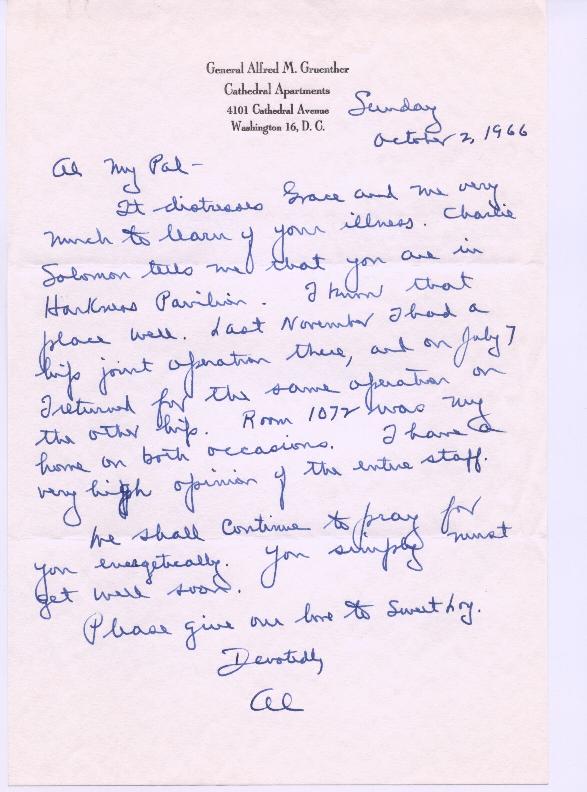 General Alfred M. Gruenther
Cathedral Apartments
4101 Cathedral Avenue
Washington 16, D. C.
Sunday
October 2, 1966
Al My Pal-
It distresses Grace and me very
much to learn of your illness. Charlie
Solomon tells me that you are in
Harkness Pavilion. I know that
place well. Last November I had a
hip joint operation there, and on July 7
I returned for the same operation on
the other hip. Room 1072 was my
home on both occasions. I have a
very high opinion of the entire staff.
We shall continue to pray for
you energetically. You simply must
get well soon.
Please give our love to Sweet Loy.
Devotedly
Al